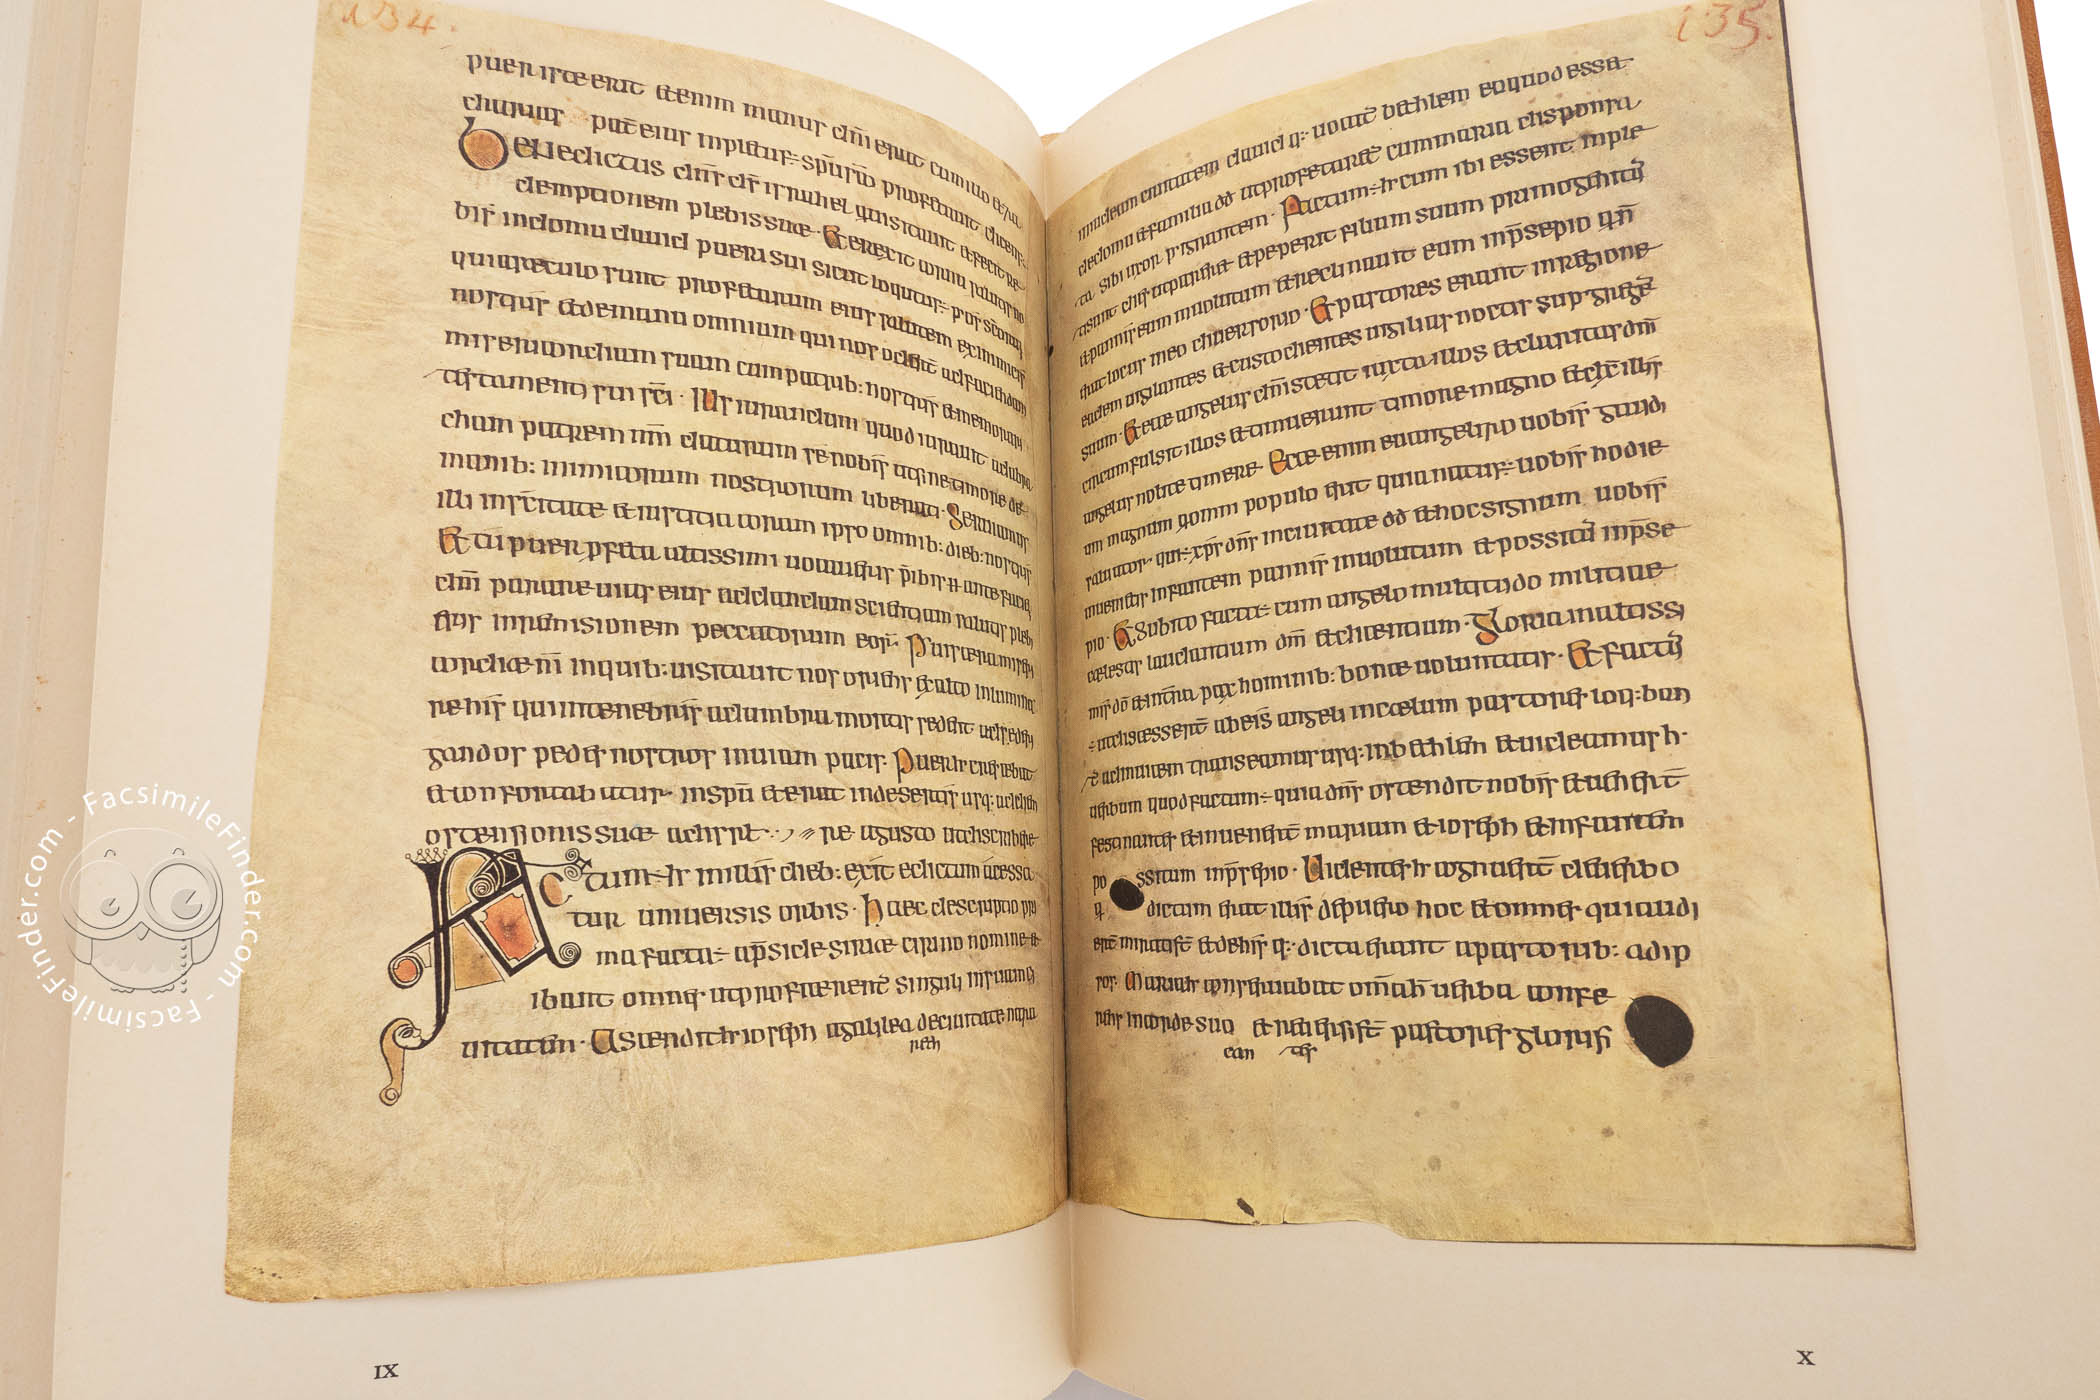 134.
puer iste erit etenim manus dn̄i erat cum illo et za
charias pat̄ eius inpletus÷ sp̄u sc̄o profetauit dicens
Benedictus dn̄s ds̄ israhel quia uisitauit et fecit re
demptionem plebis suae · Et erexit cornu salutis no
bis indomu dauid pueri sui sicut locutus÷ p os sc̄orum
qui asaeculo sunt profetarum eius salutem ex inimicis
nostris et demanu omnium qui nos oderunt ad faciendam
misericordiam suam cum patrib: nostris et memorari
testamenti sui sc̄i · Ius iurandum quod iurauit ad abra
cham patrem nm̄ daturum se nobis ut sine timore de
manib: inimicorum nostrorum liberati · Seruiamus
illi in sc̄itate et iustitia coram ipso omnib: dieb: nostris
Et tu puer pfeta altissimi uocaueris p̄ibis ante faciē
dn̄i parare uias eius ad dandam scientiam salutis plebi
eius inremisionem peccatorum eor̄ · Per uiscera miseri
cordiae n̄i inquib: uisitauit nos oriens exalto inlumina
re his qui intenebris et umbra mortis sedent
gendos pedes nostros inuiam pacis · Puer h crescebat
et confortabatur · insp̄u et erat indesertis usq: addiem
ostensionis suae adisrl · re agusto ut discriberē
Actum÷ h inillis dieb: exi͡t edictum acessa
tur uniuersis orbis · haec descriptio pri
ma facta÷ ap̄side siriae cirino nomine et
ibant omnes ut profaerent̄ singuli insuam ci
uitatem · Ascendit h ioseph agalilea deciuitate naza
reth
135.
iniudeam ciuitatem dauid q: uocat̄ bethlem eoquod essa
dedomu et familia dd̄ ut profetaret̄ cummaria disponsa
ta sibi uxor p̄ignantem · Factum÷ h cum ibi essent inple
ti sunt dies ut pariret et peperit filium suum primogenitū
et pannis eum inuolutum et reclinauit eum inp̄sepio q̄n
erat locus in eo diuersorio · Et pastores erant inregione
eadem uigilantes et custodientes uigilias noctis sup gregē
suum · Et ecce angelus dn̄i stetit iuxta illos et claritas dn̄i
circumfulsit illos et timuerunt timore magno et dx̄ illis
angelus nolite timere · Ecce enim euangelizo uobis gaudi
um magnum q omni populo erit quia natus÷ uobis hodie
saluator · qui÷ xp̄s dn̄s inciuitate dd̄ et hoc signum uobis
inuenietis infantem pannis inuolutum et possitū inp̄se
pio · Et subito facta÷ cum angelo multitudo militiae
caelestis laudantium dm̄ et dicentium · Gloria inaltiss
imis dō et interra pax hominib: bonae uoluntatis · Et factū
÷ ut discesserit̄ abeis angeli incaelum pastores loq:ban
t̄ adinuicem transeamus usq: inbethlem et uideamus h ·
uerbum quod factum÷ quia dn̄s ostendit nobis et uenerūt
festinantes et inuenerunt mariam et ioseph et infantem
po ssitum inp̄sepio · Uidentes h cognauerūt deuerbo
q dictum erat illis depuero hoc et omnes qui audi
erūt mirati sūt et dehis q: dicta erant apastorib: adip
sos · Maria h conseruabat omnia uerba confe
rens incorde suo et reuersi sūt pastores glorifi
can tes
IX
X
FacsimileFinder.com - FacsimileFinder.com -